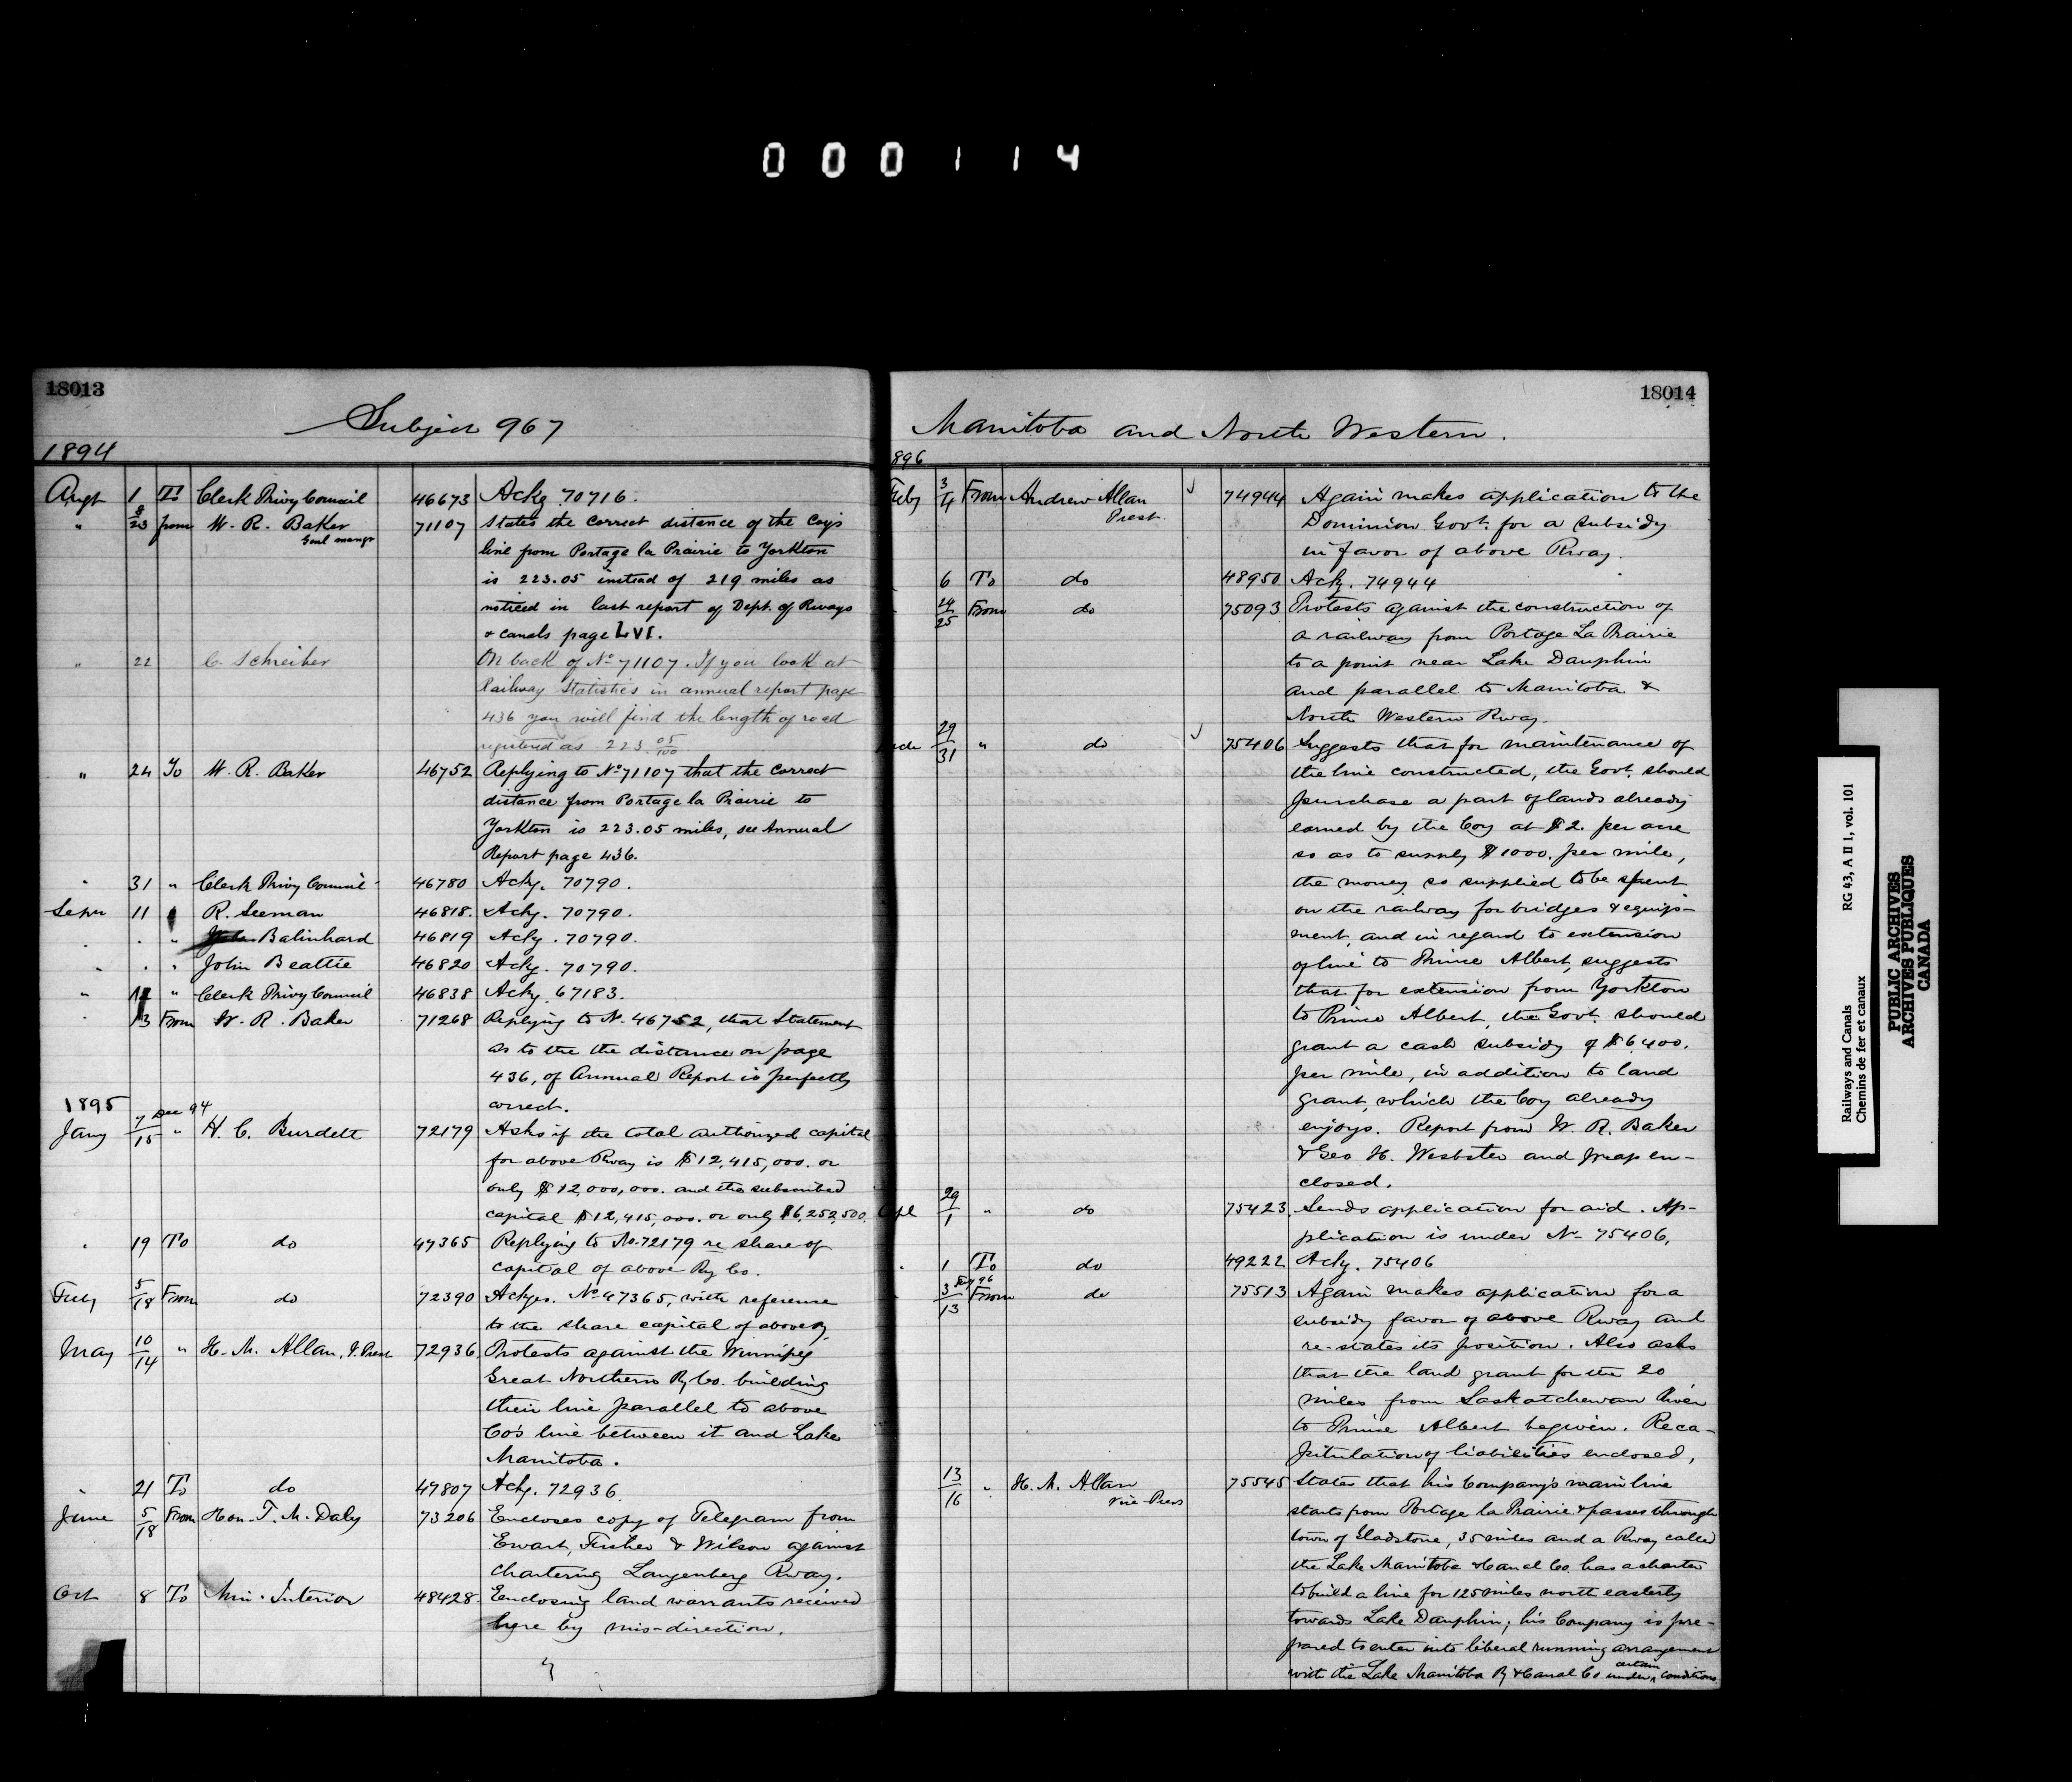 000114
18013
Subject 967
1894
Augt 1 To Clerk Privy Council 46673 Ackg 70716.
" 8/23 from W. R. Baker Genl mangr 71107 States the correct distance of the Coy's
line from Portage la Prairie to Yorkton
is 223.05 instead of 219 miles as
noticed in last report of Dept. of Rways
& canals page LVI.
" 22 C. Schreiber On back of No 71107. If you look at
Railway Statistics in annual report page
436 you will find the length of road
registered as 223 05/100
" 24 To W. R. Baker 46752 Replying to No 71107 that the correct
distance from Portage la Prairie to
Yorkton is 223.05 miles, see Annual
Report page 436.
" 31 " Clerk Privy Council 46780 Ackg. 70790.
Sepr 11 R. Seeman 46818. Ackg. 70790.
" " " Balinhard 46819 Ackg. 70790.
" " " John Beattie 46820 Ackg. 70790.
" 12 " Clerk Privy Council 46838 Ackg. 67183.
" 13 From W. R. Baker 71268 Replying to No 46752, that Statement
as to the the distance on page
436, of Annual Report is perfectly
correct.
1895
Jany 7 Dec 94/15 " H. C. Burdett 72179 Asks if the total authorized capital
for above Rway is $12,415,000. or
only $12,000,000. and the subscribed
capital $12,415,000. or only $6,252,500.
" 19 To do 47365 Replying to No. 72179 re share of
capital of above Ry Co.
Feby 5/18 From do 72390 Ackges. No 47365, with reference
to the share capital of above Ry
May 10/14 " H. M. Allan, V. Prest 72936. Protests against the Winnipeg
Great Northern Ry Co. building
their line parallel to above
Co's line between it and Lake
Manitoba.
" 21 To do 47807 Ackg. 72936
June 5/18 From Hon. T. M. Daly 73206 Encloses copy of Telegram from
Ewart, Fisher & Wilson against
chartering Langenberg Rway.
Oct 8 To Min. Interior 48428. Enclosing land warrants received
here by mis-direction.
18014
Manitoba and North Western.
896
Feby 3/4 From Andrew Allan Prest. 74944 Again makes application to the
Dominion Govt. for a subsidy
in favor of above Rway.
6 To do 48950 Ackg. 74944
24/25 From do 75093 Protests against the construction of
a railway from Portage La Prairie
to a point near Lake Dauphin
and parallel to Manitoba &
North Western Rway.
29/31 " do 75406 Suggests that for maintenance of
the line constructed, the Govt. should
purchase a part of lands already
earned by the Coy at $2. per acre
so as to supply $1000. per mile,
the money so supplied to be spent
on the railway for bridges & equip-
ment, and in regard to extension
of line to Prince Albert, suggests
that for extension from Yorkton
to Prince Albert, the Govt. should
grant a cash subsidy of $6400.
per mile, in addition to land
grant, which the Coy already
enjoys. Report from W. R. Baker
& Geo H. Webster and map en-
closed.
29/1 " do 75423. Sends application for aid. Ap-
plication is under No 75406,
" 1 To do 49222 Ackg. 75406
3 Feby 96/13 From do 75513 Again makes application for a
subsidy favor of above Rway and
re-states its position. Also asks
that the land grant for the 20
miles from Saskatchewan River
to Prince Albert be given. Reca-
pitulation of liabilities enclosed,
13/16 " H. M. Allan Vice Pres 75545 States that his Company's main line
starts from Portage la Prairie & passes through
town of Gladstone, 35 miles and a Rway called
the Lake Manitoba & Canal Co. has a charter
to build a line for 125 miles north easterly
towards Lake Dauphin; his Company is pre-
pared to enter into liberal running arrangement
with the Lake Manitoba Ry & Canal Co under certain conditions
Railways and Canals RG 43, A II 1, vol. 101
Chemins de fer et canaux
PUBLIC ARCHIVES
ARCHIVES PUBLIQUES
CANADA